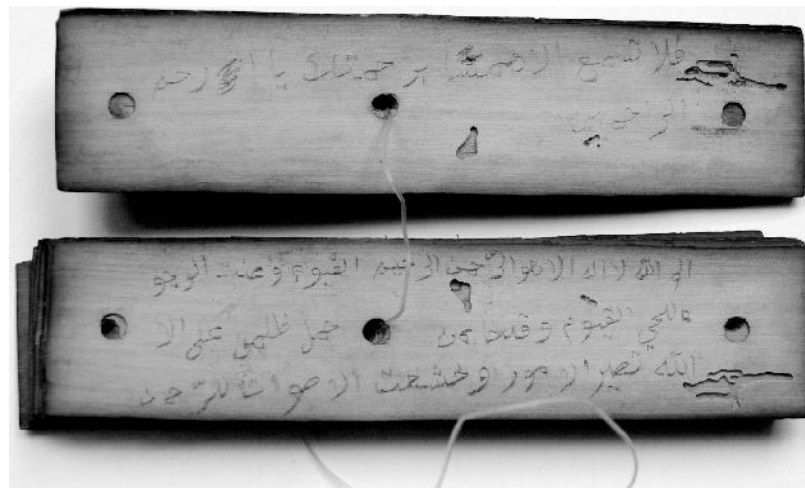 فلا تسمع الا همسا برحمتك يا ارحم
الراحمين
الم الله لا اله الا هو الرحمن الرحيم القيوم وعنت الوجو
ه للحي القيوم وقد خاب من حمل ظلما على الا
الله تصير الامور وخشعت الاصوات للرحمن